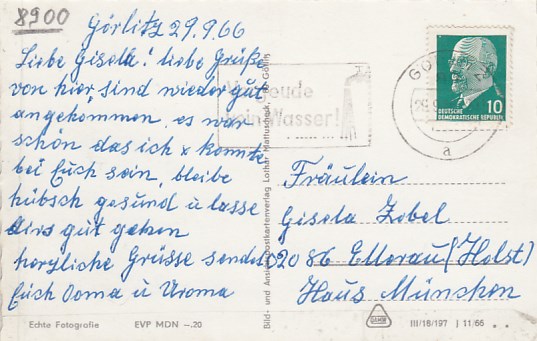 8900
Görlitz 29.9.66
Liebe Gisela! liebe Grüße
von hier, sind wieder gut
angekommen, es war
schön das ich x konnte
bei Euch sein, bleibe
hübsch gesund u lasse
dirs gut gehen
herzliche Grüsse sendet
Euch Ooma u Uroma
Vergeude
kein Wasser!
29.9
a
10
DEUTSCHE
DEMOKRATISCHE REPUBLIK
Fräulein
Gisela Zobel
2086 Ellerau (Holst)
Haus München
Bild- und Ansichtskartenverlag Lothar
Echte Fotografie EVP MDN –.20
III/18/197 J 11/66